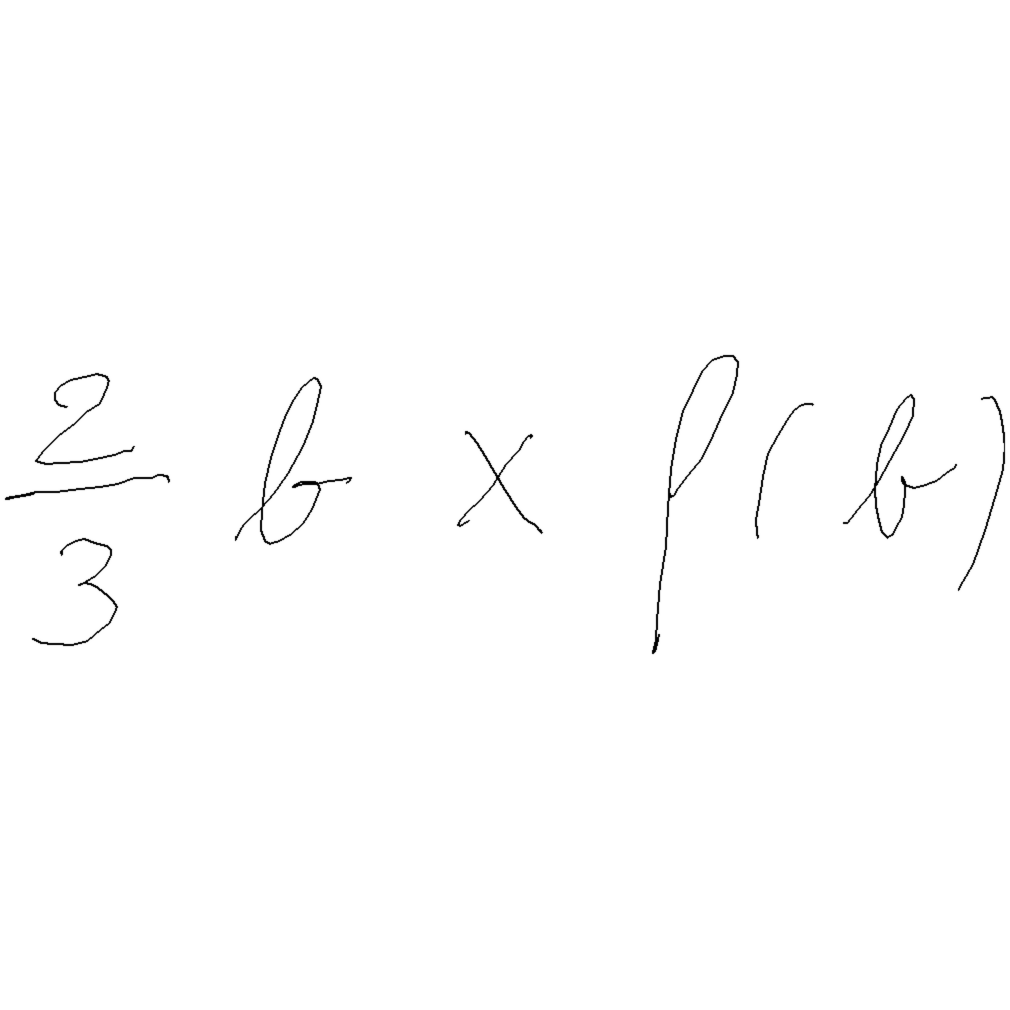 \frac{2}{3} b \times f(b)